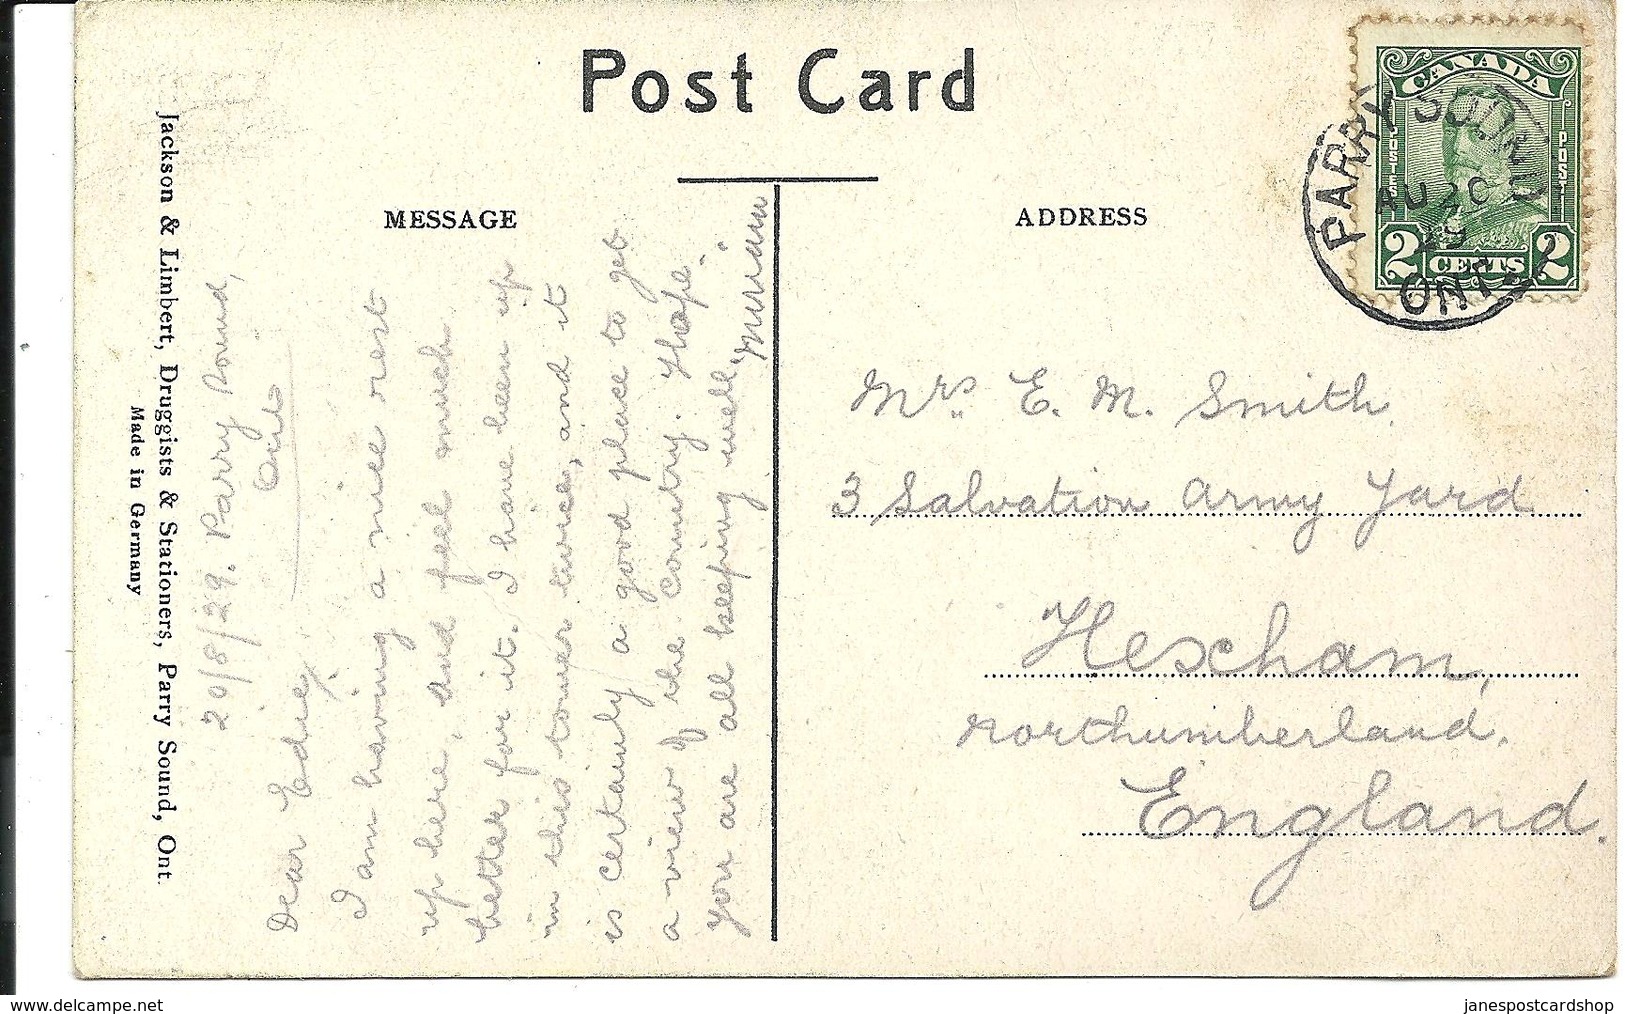 Post Card
MESSAGE
ADDRESS
CANADA
POSTES
POST
2 CENTS 2
PARRY SOUND
AU 20
29
ONT.
Jackson & Limbert, Druggists & Stationers, Parry Sound, Ont.
Made in Germany
20/8/29. Parry Sound,
Ont.
Dear Edie,
I am having a nice rest
up here, and feel much
better for it. I have been up
in this tower twice, and it
is certainly a good place to get
a view of the country. Hope
you are all keeping well.
Miriam
Mrs. E. M. Smith.
3 Salvation Army Yard
Hexcham,
Northumberland.
England.
www.delcampe.net
janespostcardshop